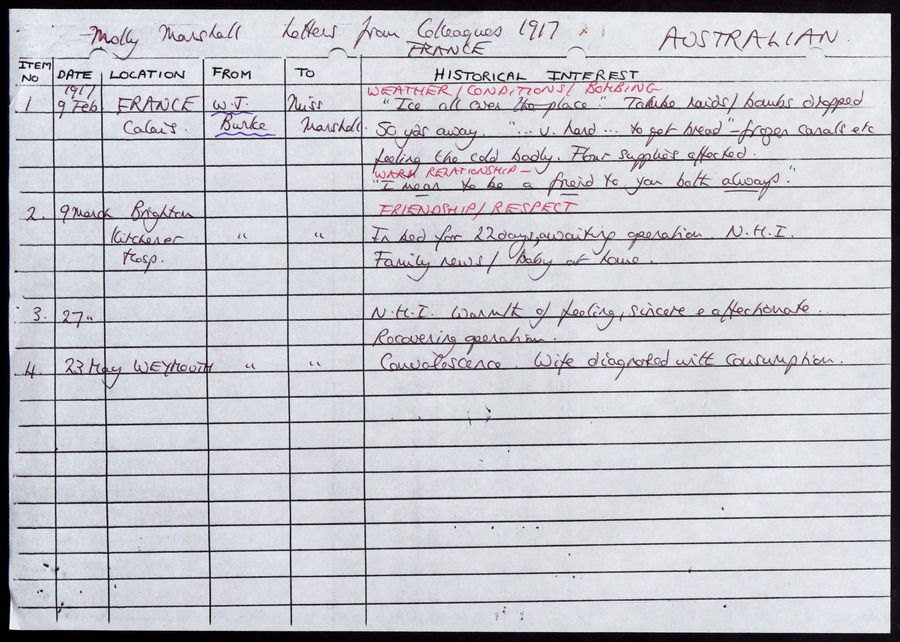 Molly Marshall Letters from Colleagues 1917 AUSTRALIAN
FRANCE
ITEM NO DATE LOCATION FROM TO HISTORICAL INTEREST
1917 WEATHER/CONDITIONS/BOMBING
1 9 Feb FRANCE W.J. Miss "Ice all over the place." raids/bombs dropped
Calais. Burke Marshall 50 yds away. "... v. hard ... to get bread" - frozen canals etc
feeling the cold badly. Flour supplies affected.
WARM RELATIONSHIP -
"I mean to be a freid to you both always."
2. 9 March Brighton FRIENDSHIP/RESPECT
Kitchener " " In bed for 22 days, awaiting operation N.H.I.
Hosp. Family news/ baby at home.
3. 27 " N.H.I. Warmth of feeling, sincere & affectionate.
Recovering operation.
4. 23 May WEYMOUTH " " Convalescence. Wife diagnosed with Consumption.